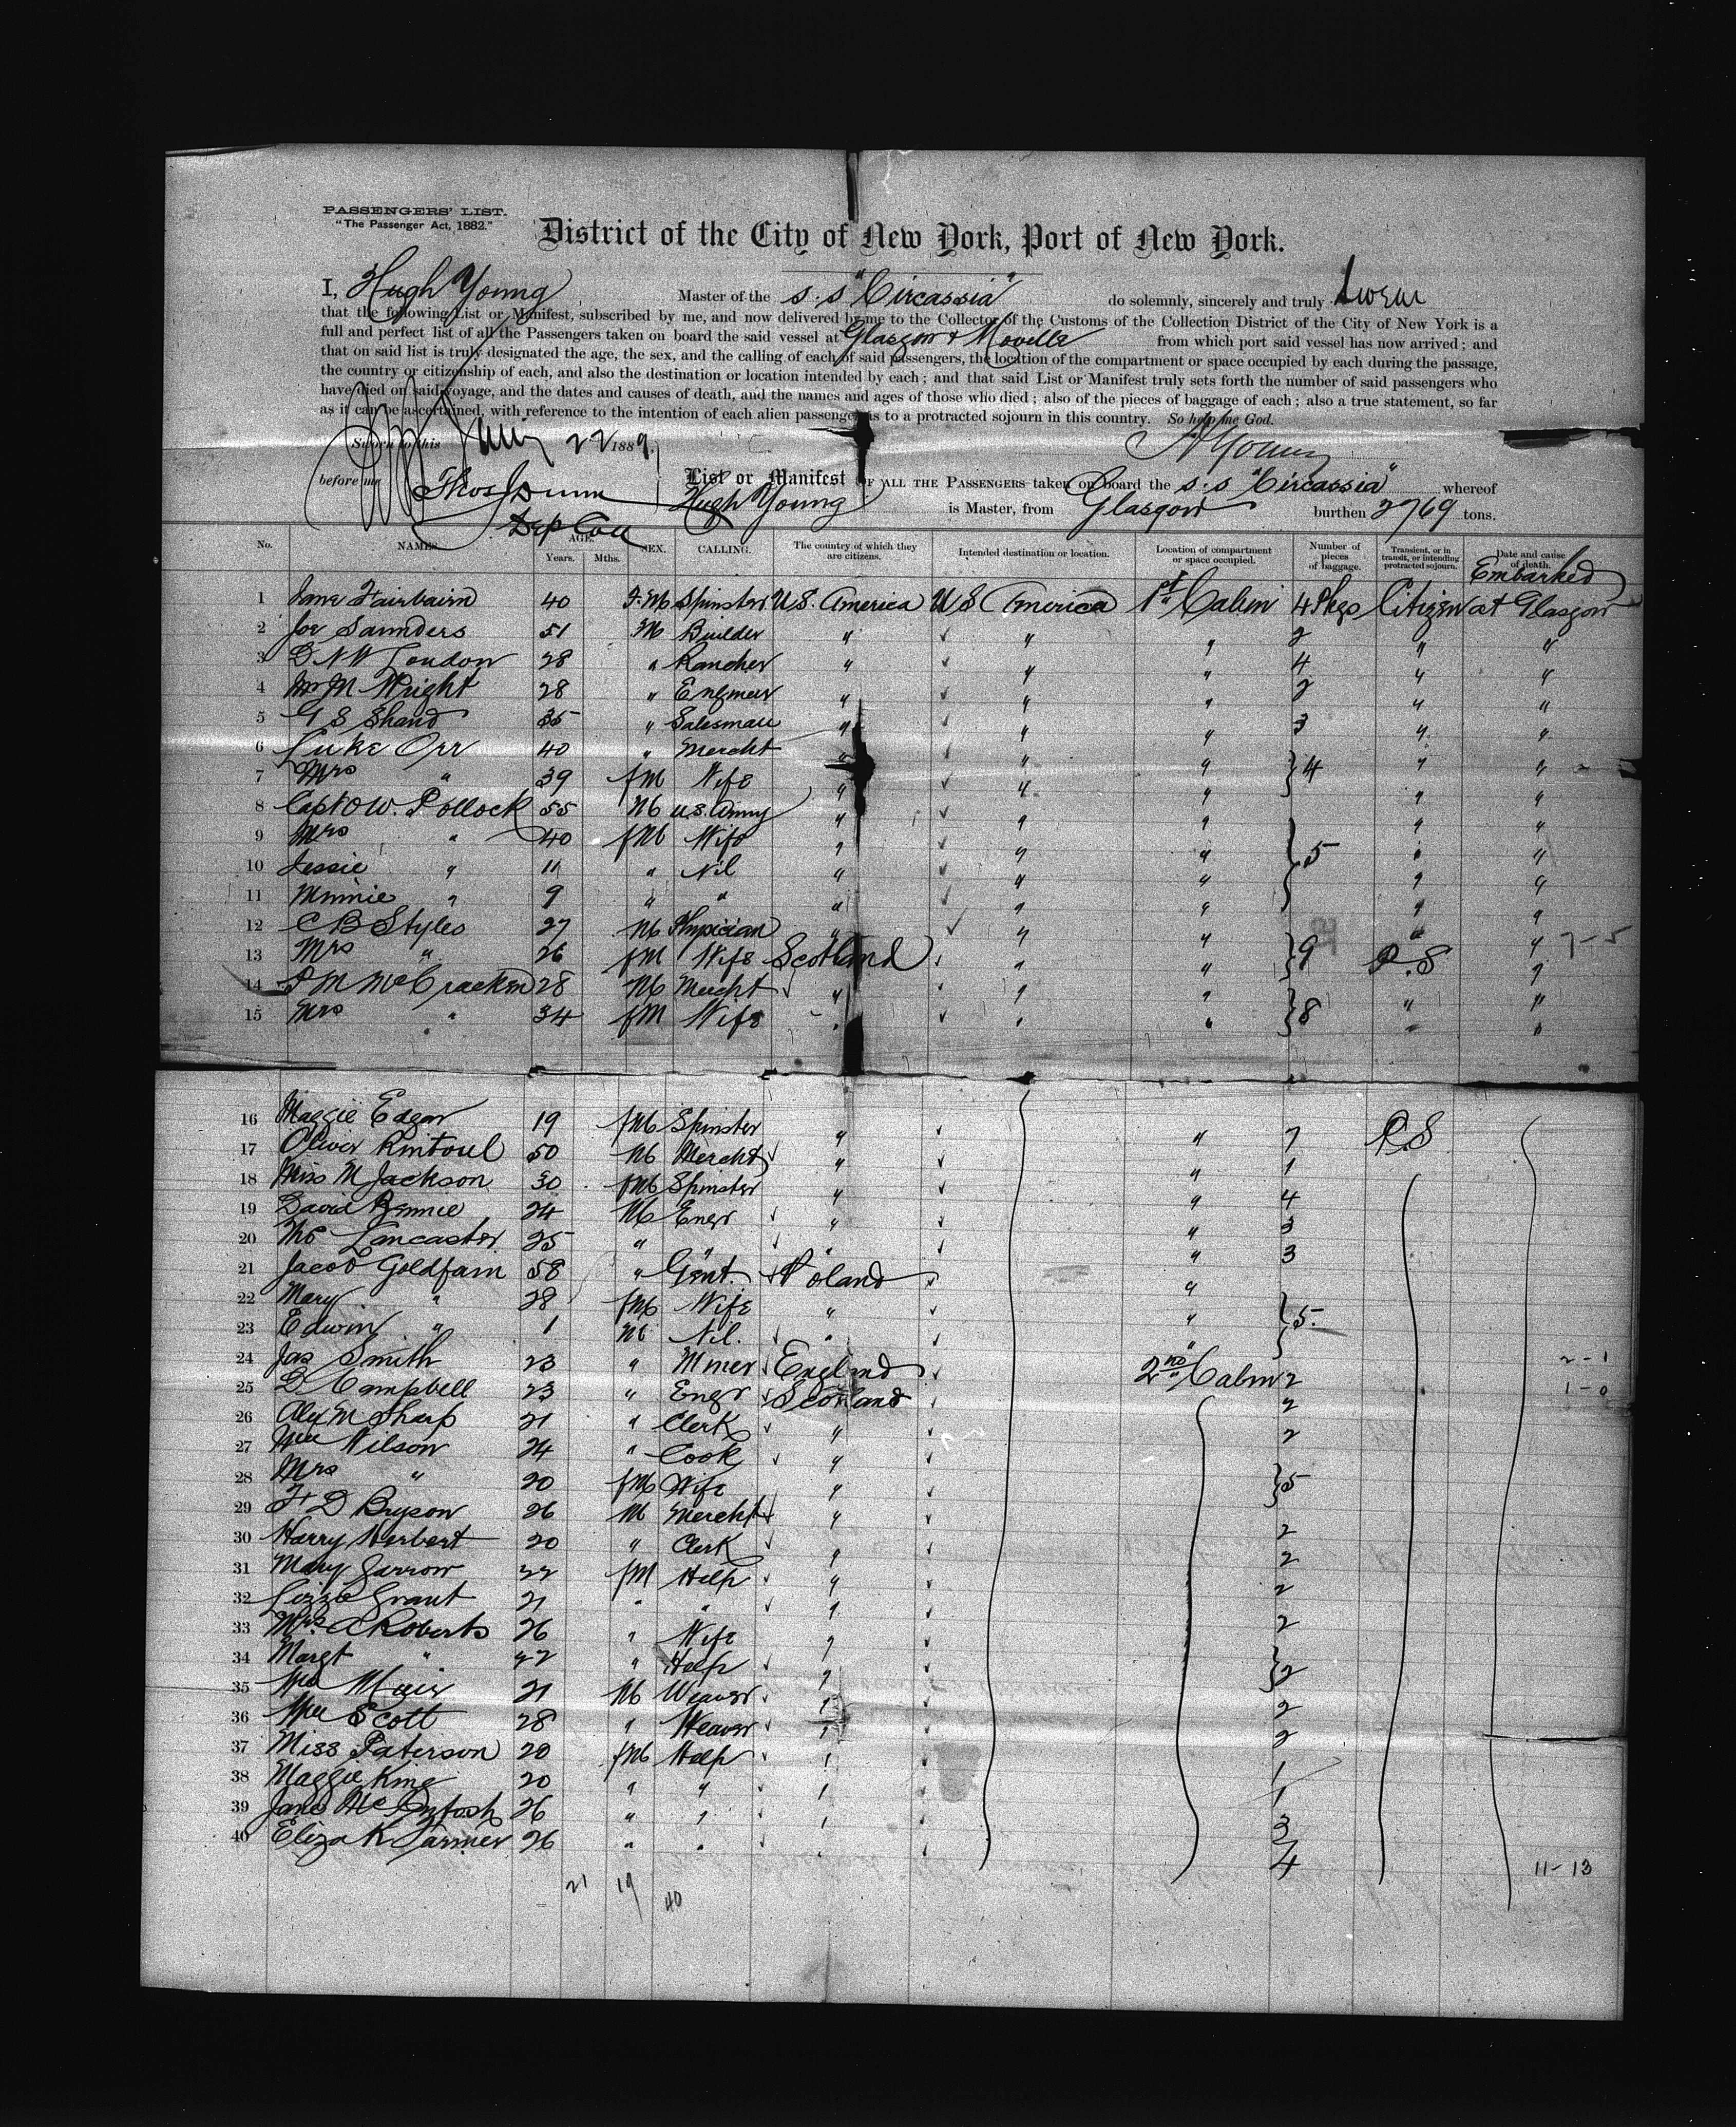 PASSENGERS' LIST.
"The Passenger Act, 1882."
District of the City of New York, Port of New York.
I, Hugh Young Master of the s.s "Circassia" do solemnly, sincerely and truly swear
that the following List or Manifest, subscribed by me, and now delivered by me to the Collector of the Customs of the Collection District of the City of New York is a
full and perfect list of all the Passengers taken on board the said vessel at Glasgow & Moville from which port said vessel has now arrived; and
that on said list is truly designated the age, the sex, and the calling of each of said passengers, the location of the compartment or space occupied by each during the passage,
the country or citizenship of each, and also the destination or location intended by each; and that said List or Manifest truly sets forth the number of said passengers who
have died on said voyage, and the dates and causes of death, and the names and ages of those who died; also of the pieces of baggage of each; also a true statement, so far
as it can be ascertained, with reference to the intention of each alien passenger as to a protracted sojourn in this country. So help me God.
Sworn to this 22 1889. H Young
before me Thos Dunn List or Manifest OF ALL THE PASSENGERS taken on board the s.s "Circassia" whereof
Dep Coll Hugh Young is Master, from Glasgow burthen 2769 tons.
No. NAMES. AGE. Years. Mths. SEX. CALLING. The country of which they are citizens. Intended destination or location. Location of compartment or space occupied. Number of pieces of baggage. Transient, or in transit, or intending protracted sojourn. Date and cause of death.
Embarked
1 Jane Fairbairn 40 F.M Spinster U.S. America U S America 1st Cabin 4 Pkgs Citizen at Glasgow
2 Joe Saunders 51 M Builder " " " 2 " "
3 D N W Loudon 28 " Rancher " " " 4 " "
4 Wm M Wright 28 " Engineer " " " 2 " "
5 G S Shand 35 " Salesman " " " 3 " "
6 Luke Orr 40 " Mercht " " " } 4 " "
7 Mrs " 39 fM Wife " " " " "
8 Capt O W. Pollock 55 M U.S. Army " " " " "
9 Mrs " 40 fM Wife " " " } 5 " "
10 Jessie " 11 " Nil " " " " "
11 Minnie " 9 " " " " " " "
12 C B Styles 27 M Physician " " " } 9 " " 7-5
13 Mrs " 26 fM Wife Scotland " " P.S "
14 McCracken 28 M Mercht " " " } 8 " "
15 Mrs " 34 fM Wife " " " " "
16 Maggie Edgar 19 fM Spinster " " 7 P.S
17 Oliver Rintoul 50 M Mercht " " 1
18 Miss M Jackson 30 fM Spinster " " 4
19 David Rennie 24 M Engr " " 3
20 Thos Lancaster 25 " " " " 3
21 Jacob Goldfam 58 " Gent. Poland "
22 Mary " 28 fM Wife " " } 5.
23 Edwin " 1 M Nil. " "
24 Jas Smith 23 " Miner England 2nd Cabin 2 2-1
25 D Campbell 23 " Engr Scotland 2 1-0
26 Alex M Sharp 21 " Clerk " 2
27 Wm Wilson 24 " Cook "
28 Mrs " 20 fM Wife " } 5
29 F D Bryson 26 M Mercht " 2
30 Harry Herbert 20 " Clerk " 2
31 Mary Jarrow 22 fM Help " 2
32 Lizzie Grant 21 " " " 2
33 Mrs A Roberts 26 " Wife "
34 Margt " 22 " Help " } 2
35 Wm Muir 21 M Weaver " 2
36 Wm Scott 28 " Weaver " 2
37 Miss Paterson 20 fM Help " 1
38 Maggie King 20 " " " 1
39 Jane McIntosh 26 " " " 3
40 Eliza K Farmer 26 " " " 4 11-13
21 19 40